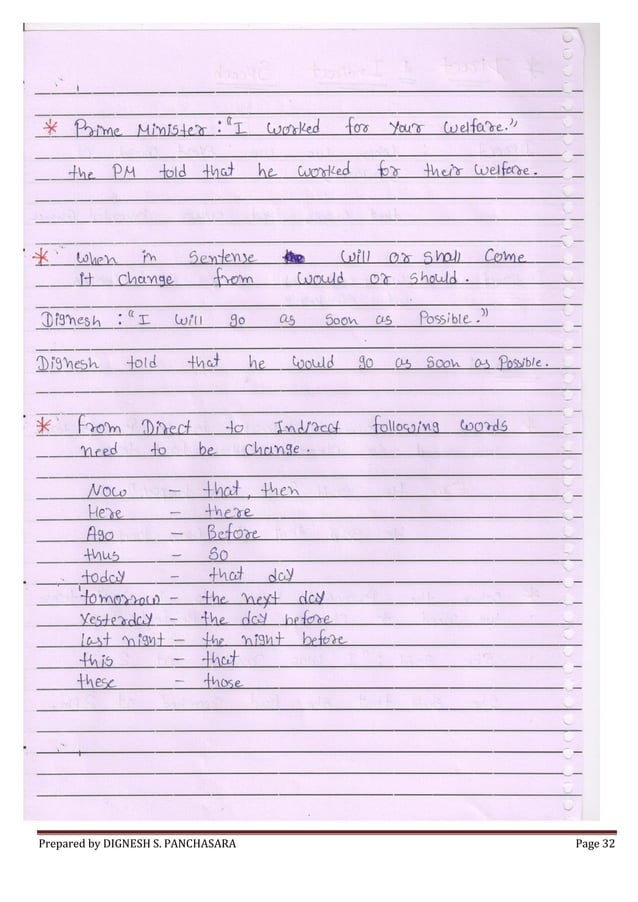 * Prime Minister : "I worked for your welfare."
the PM told that he worked for their welfare.
* When in sentense will or shall come
it change from would or should.
Dignesh : "I will go as soon as Possible."
Dignesh told that he would go as soon as Possible.
* from Direct to Indirect following words
need to be change.
Now - that, then
Here - there
Ago - Before
thus - so
today - that day
tomorrow - the next day
Yesterday - the day before
last night - the night before
this - that
these - those
Prepared by DIGNESH S. PANCHASARA Page 32